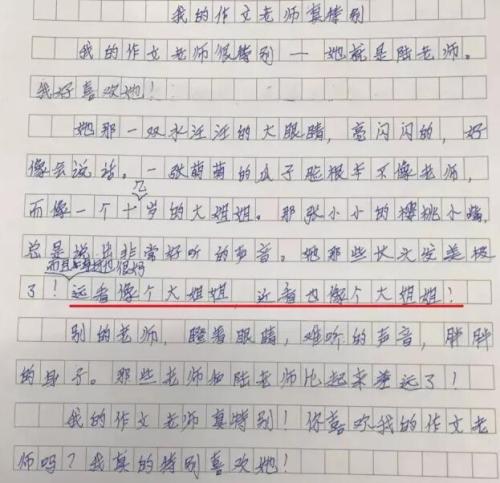 我的作文老师真特别
我的作文老师很特别 — 她就是陆老师。
我好喜欢她！
她那一双水汪汪的大眼睛，亮闪闪的，好
像会说话。一张萌萌的瓜子脸根本不像老师，
几
而像一个十岁的大姐姐。那张小小的樱桃小嘴
总是说出非常好听的声音。她那些长头发美极
而且身材也很好
了！远看像个大姐姐，近看也像个大姐姐！
别的老师，瞪着眼睛，难听的声音，胖胖
的身子。那些老师和陆老师比起来差远了！
我的作文老师真特别！你喜欢我的作文老
师吗？我真的特别喜欢她！